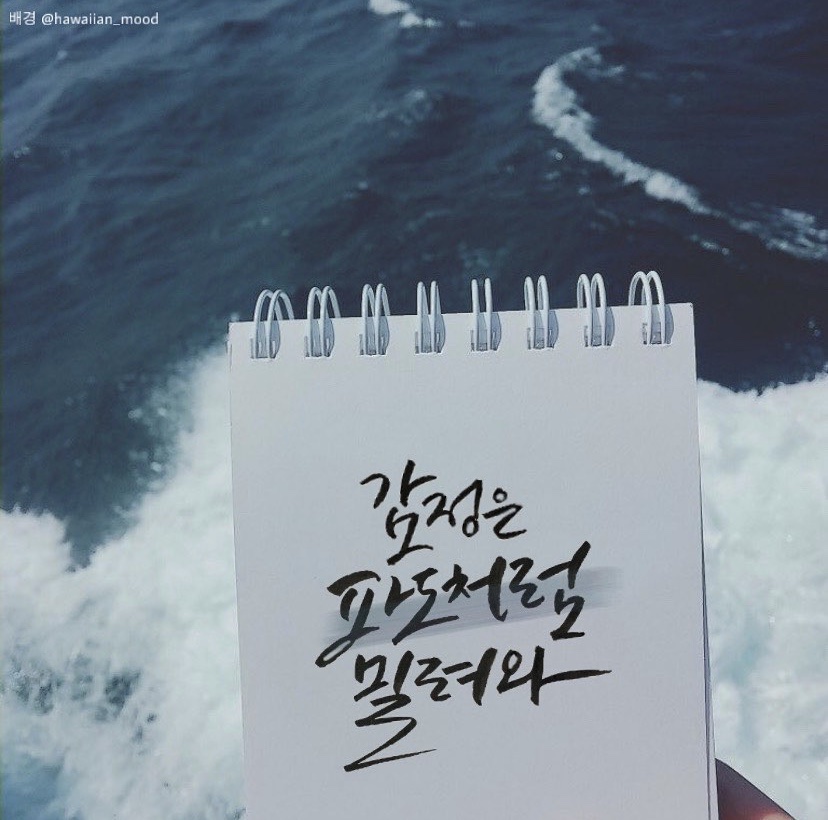 배경 @hawaiian_mood
감정은
파도처럼
밀려와